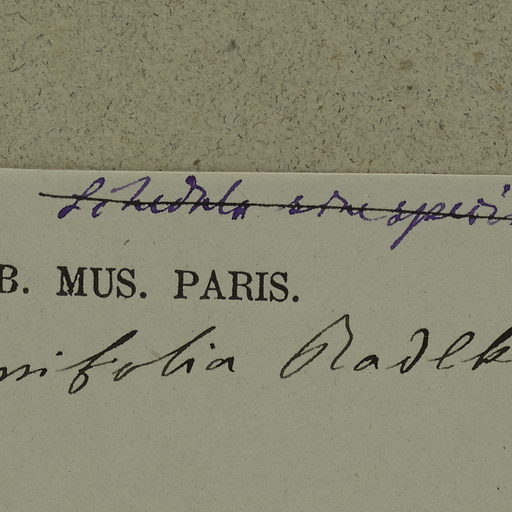 Schedula sine speci
B. MUS. PARIS.
nifolia Radlk